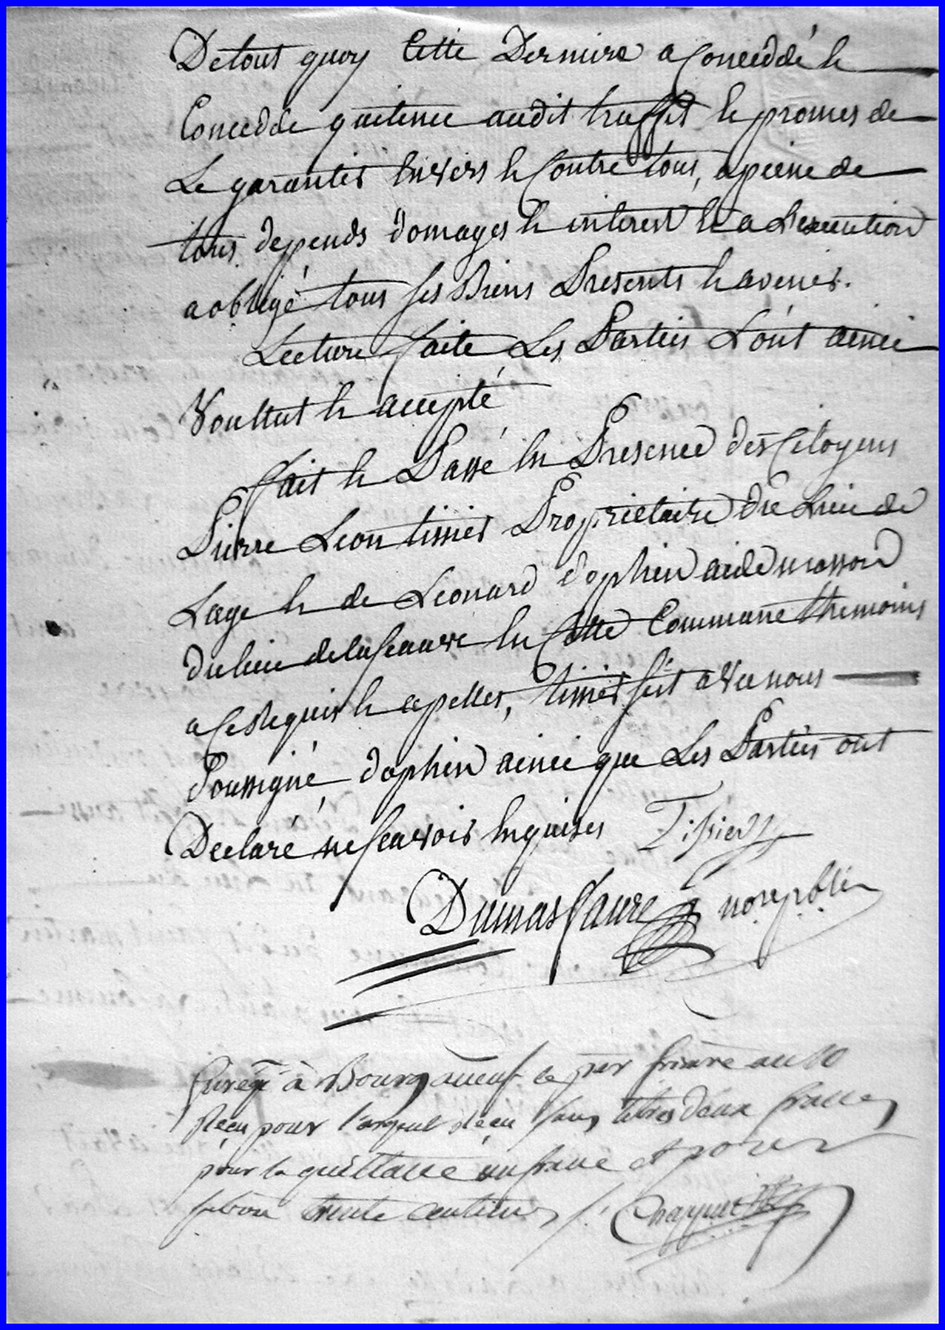 De tout quoy Cette Derniere a Conceddé le
Concedde quitence audit truffit le promes de
Le garantir Envers le Contre tous, a peine de
tous depends domages le interest le a Lexecution
a obligé tous ses Biens Presents le avenir.
Lecture faite Les Parties Lont ainci
Voullut le accepté
fait le Passé En Presence des Citoyens
Pierre Leon tixier Proprietaire du Lieu de
Lage le de Léonard dophin aide masson
du lieu de la feauve En Cette Commune themoins
a ce Requis le apelles, tixier seit avec nous
Soussigné, dophin ainci que Les Parties ont
Declaré ne scavoir En quises Tixier
Dumasfaure nore. publi
Enreg. à Bourganeuf le pr frimre an 10
Reçu pour l'argent Reçu sans titre deux francs
pour la quittance un franc et pour
subon trente centimes